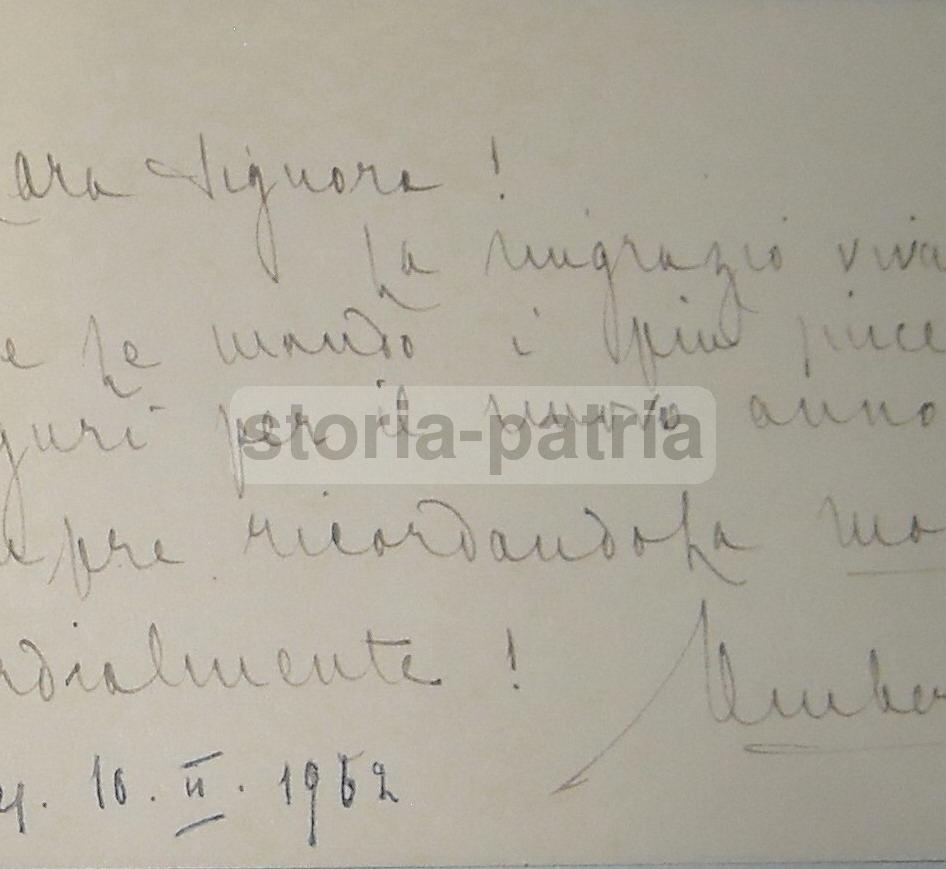 ara Signora !
La ringrazio viva
e Le mando i più since
guri per il nuovo anno
storia-patria
pre ricordandoLa mo
rdialmente !
Umber
10. II. 1962